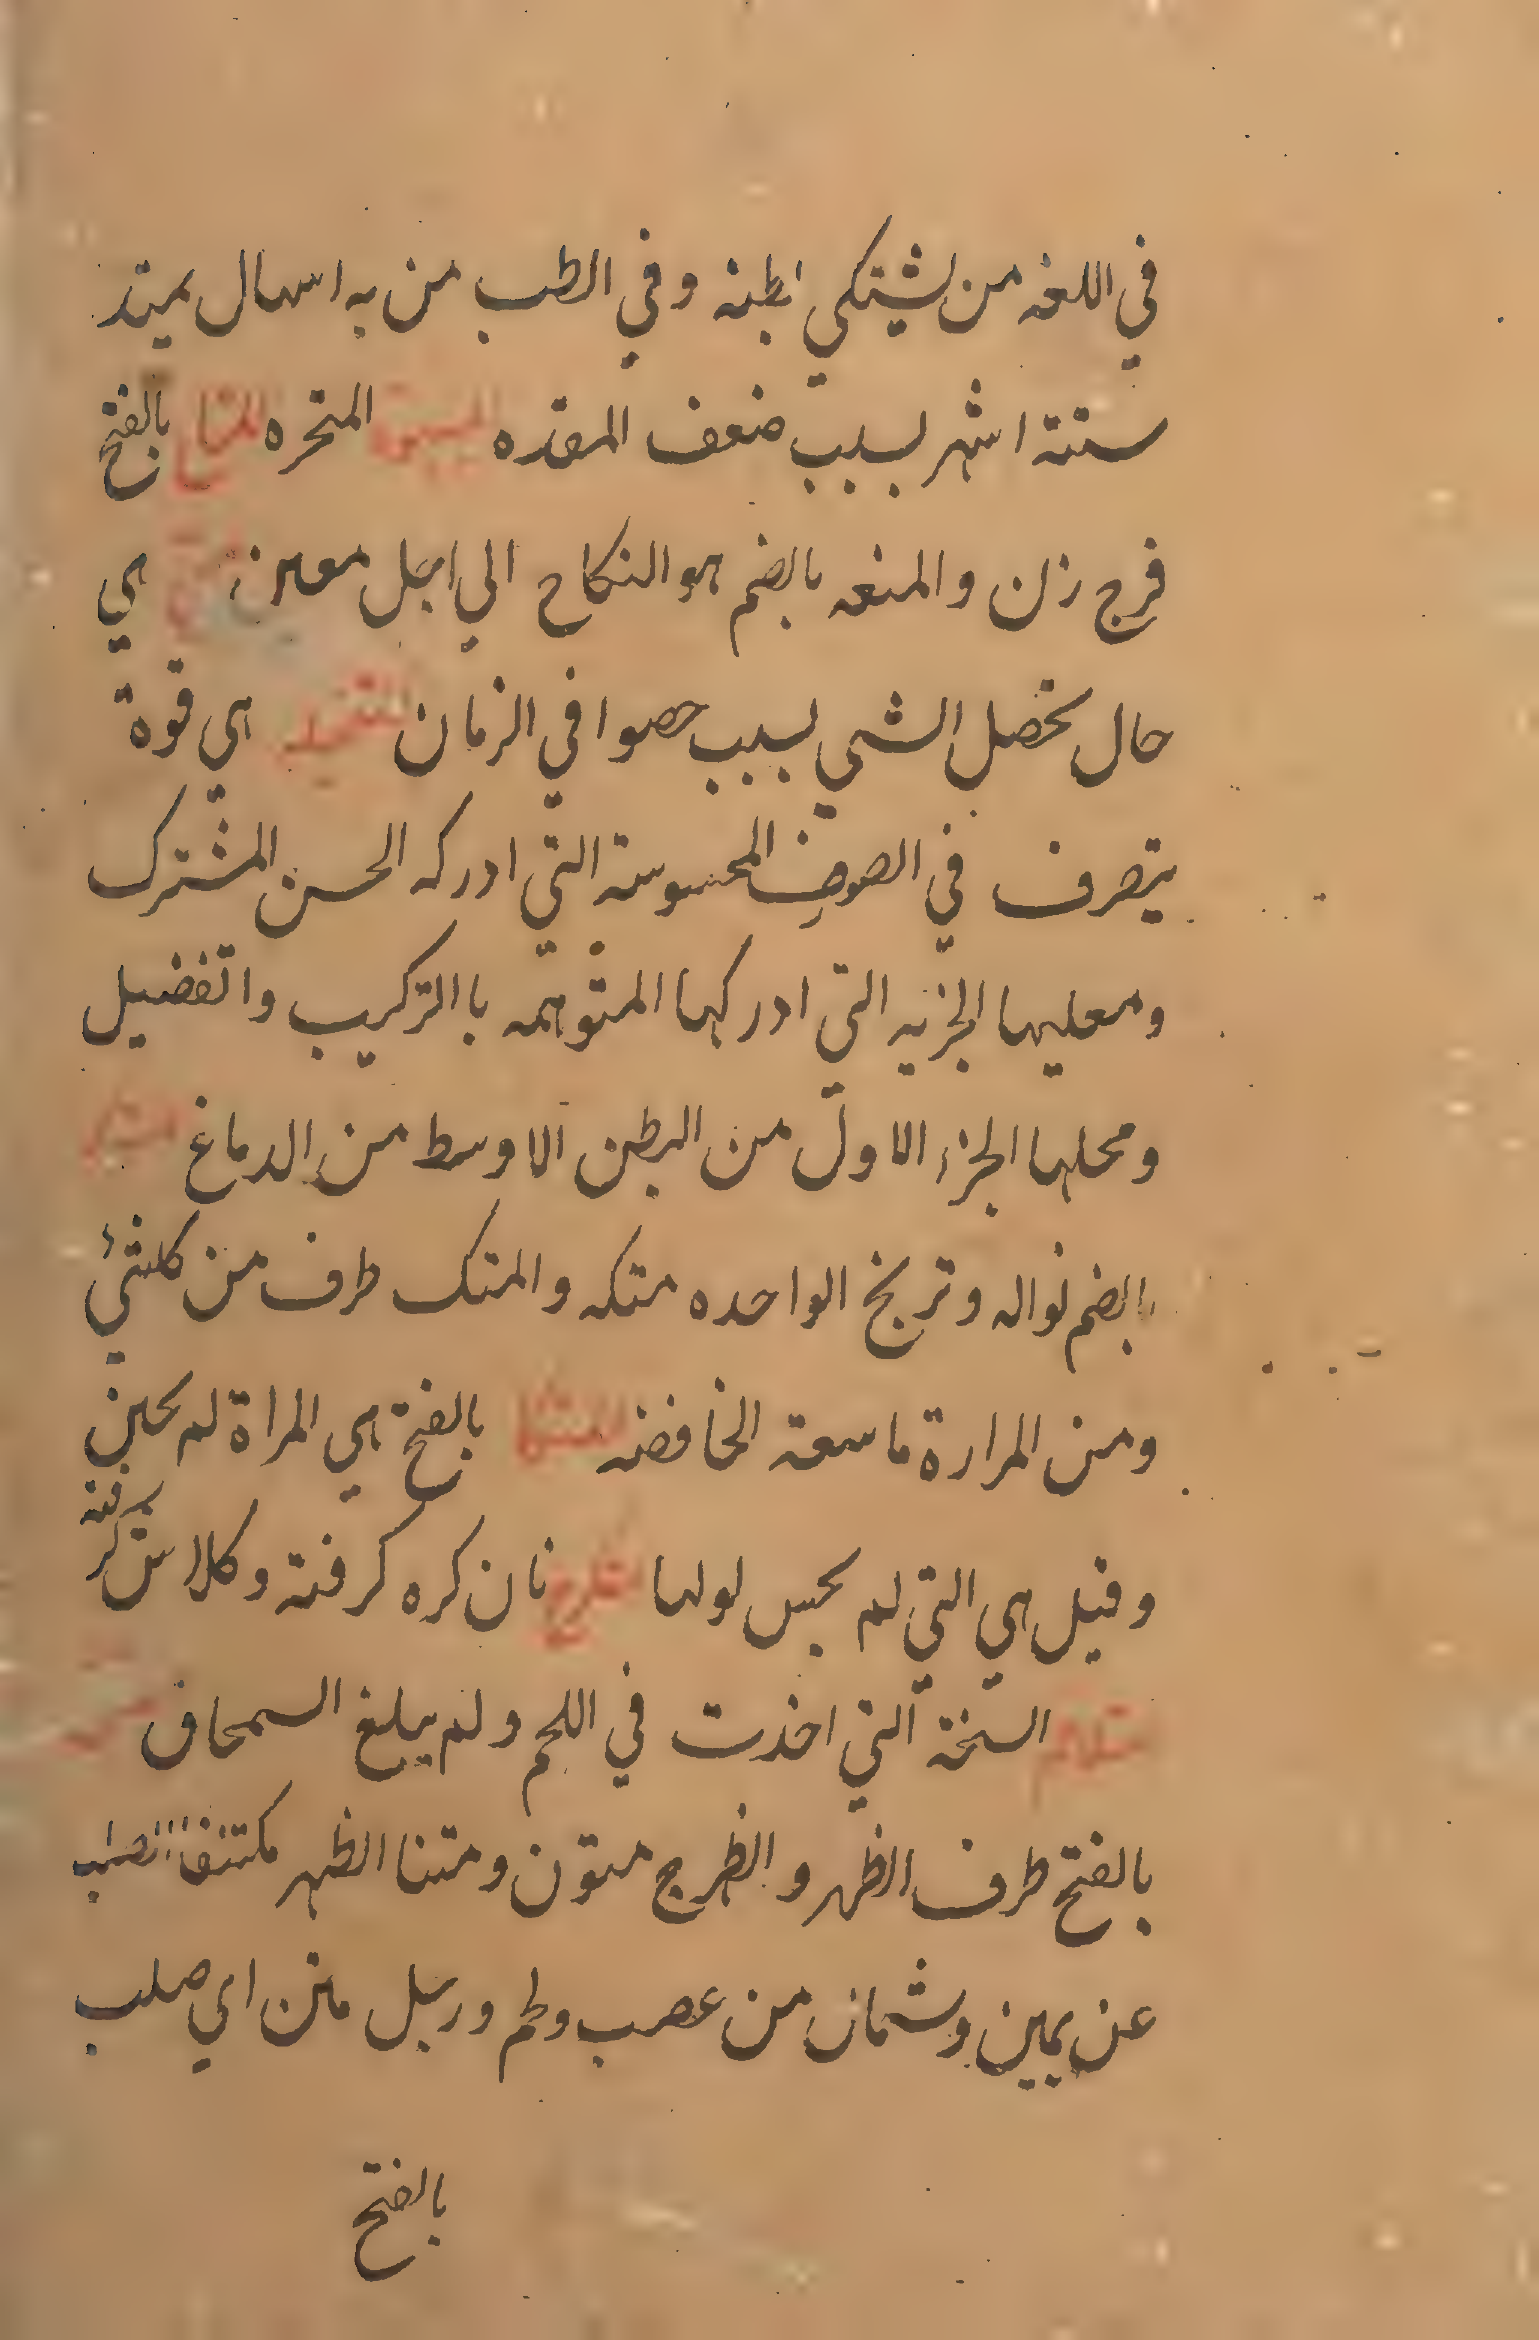 في اللغه من لشيتكي بطنه وفي الطب من به اسهال يميتد
ستة اشهر لسبب ضعف المعده المتحره المتاع بالفتح
فرج زن والمنعه بالضم هو النكاح الي اجل معين هي
حال يحصل الشي لسبب حصوا في الزمان هي قوة
يتصرف في الصور المحسوسة التي ادركه الحسن المشترك
ومعليها الجزيه التي ادركها المتوهمه باالتركيب واتفضيل
ومحلها الجزء الاول من البطن الاوسط من الدماغ
بالضم نواله وتريخ الواحده متكه والمتك طرف من كلشئ
ومن المرارة ماسعة الخافضه بالفتح هي المراة لم يحبن
وقيل هي التي لم يحبس لولها نان كره كرفته وكلاس كرفته
متلاحم السخة التي اخذت في اللحم ولم يبلغ السمحاف
بالفتح طرف الظهر والظرج متون ومتنا الظهر مكتنفا الصلب
عن يمين وشمان من عصب ولحم ورجل متن اي صلب
بالفتح